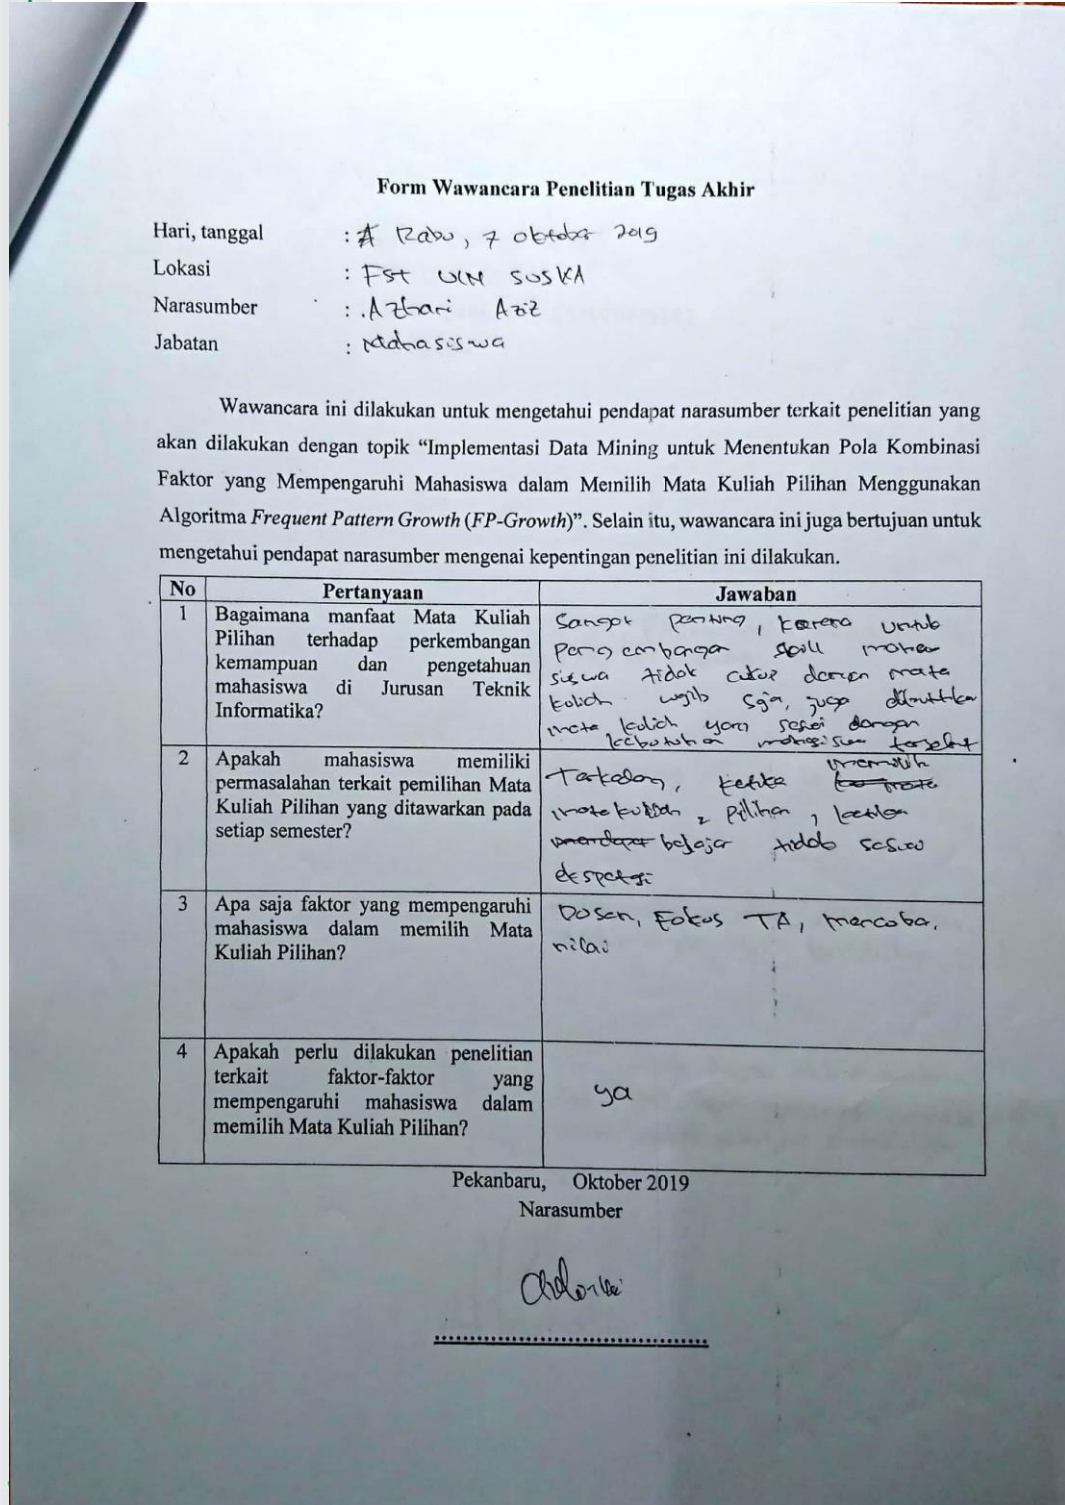 Form Wawancara Penelitian Tugas Akhir
Hari, tanggal : Rabu, 7 oktober 2019
Lokasi : FST UIN SUSKA
Narasumber : Azhari Aziz
Jabatan : Mahasiswa
Wawancara ini dilakukan untuk mengetahui pendapat narasumber terkait penelitian yang
akan dilakukan dengan topik “Implementasi Data Mining untuk Menentukan Pola Kombinasi
Faktor yang Mempengaruhi Mahasiswa dalam Memilih Mata Kuliah Pilihan Menggunakan
Algoritma Frequent Pattern Growth (FP-Growth)”. Selain itu, wawancara ini juga bertujuan untuk
mengetahui pendapat narasumber mengenai kepentingan penelitian ini dilakukan.
No Pertanyaan Jawaban
1 Bagaimana manfaat Mata Kuliah
Pilihan terhadap perkembangan
kemampuan dan pengetahuan
mahasiswa di Jurusan Teknik
Informatika?
Sangat penting, karena untuk
pengembangan skill maha
siswa tidak cukup dengan mata
kuliah wajib saja, juga dibutuhkan
mata kuliah yang sesuai dengan
kebutuhan mahasiswa tersebut
2 Apakah mahasiswa memiliki
permasalahan terkait pemilihan Mata
Kuliah Pilihan yang ditawarkan pada
setiap semester?
Terkadang, ketika memilih
mata kuliah pilihan, ketika
belajar tidak sesuai
ekspetasi
3 Apa saja faktor yang mempengaruhi
mahasiswa dalam memilih Mata
Kuliah Pilihan?
Dosen, Fokus TA, mencoba,
nilai
4 Apakah perlu dilakukan penelitian
terkait faktor-faktor yang
mempengaruhi mahasiswa dalam
memilih Mata Kuliah Pilihan?
ya
Pekanbaru, Oktober 2019
Narasumber